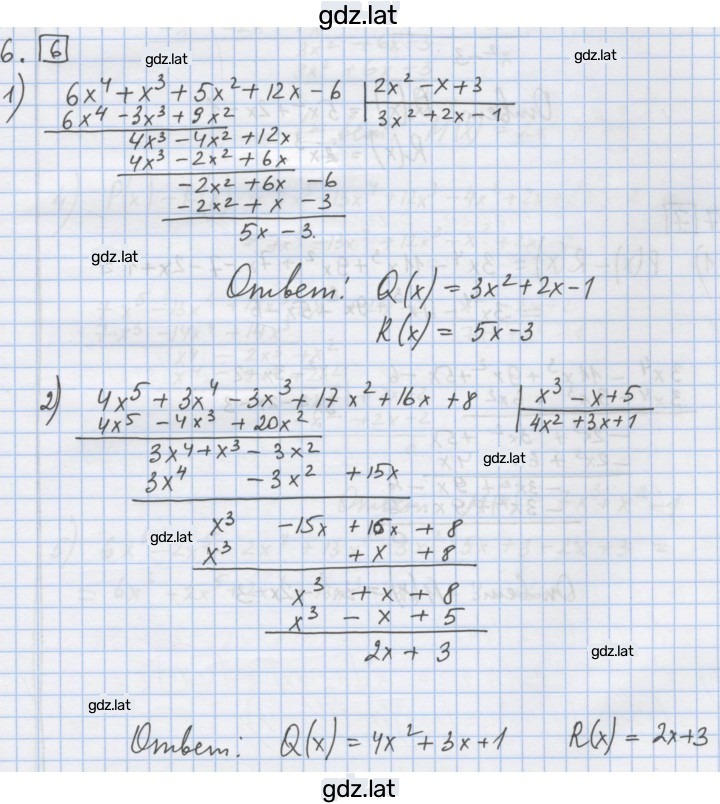 gdz.lat
6. 6
gdz.lat
gdz.lat
1) 6x⁴ + x³ + 5x² + 12x - 6 | 2x² - x + 3
6x⁴ - 3x³ + 9x² | 3x² + 2x - 1
4x³ - 4x² + 12x
4x³ - 2x² + 6x
-2x² + 6x - 6
-2x² + x - 3
5x - 3.
gdz.lat
Ответ: Q(x) = 3x² + 2x - 1
R(x) = 5x - 3
2) 4x⁵ + 3x⁴ - 3x³ + 17x² + 16x + 8 | x³ - x + 5
4x⁵ - 4x³ + 20x² | 4x² + 3x + 1
3x⁴ + x³ - 3x²
gdz.lat
3x⁴ - 3x² + 15x
x³ - 15x + 16x + 8
gdz.lat
x³ + x + 8
x³ + x + 8
x³ - x + 5
2x + 3
gdz.lat
gdz.lat
Ответ: Q(x) = 4x² + 3x + 1 R(x) = 2x + 3
gdz.lat